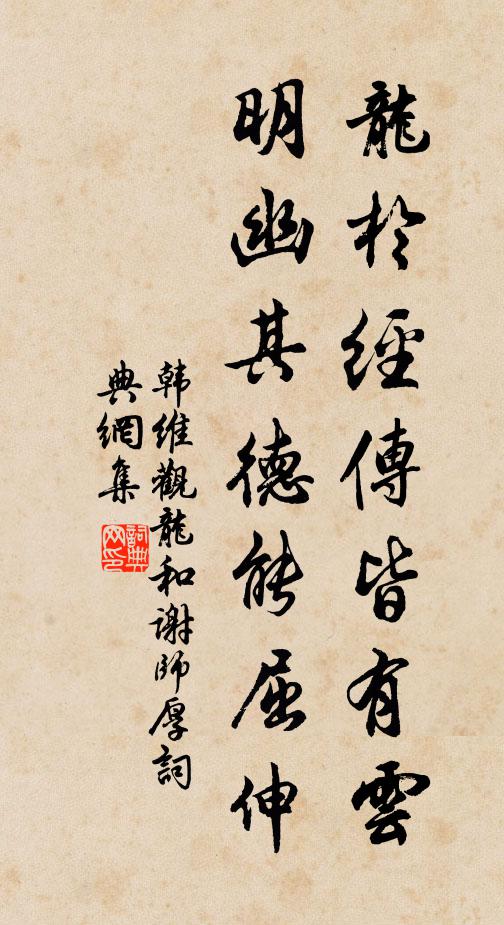 龍於經傳皆有雲
明幽其德能屈伸
韩維觀龍和謝師厚詞
典網集
詞典网印